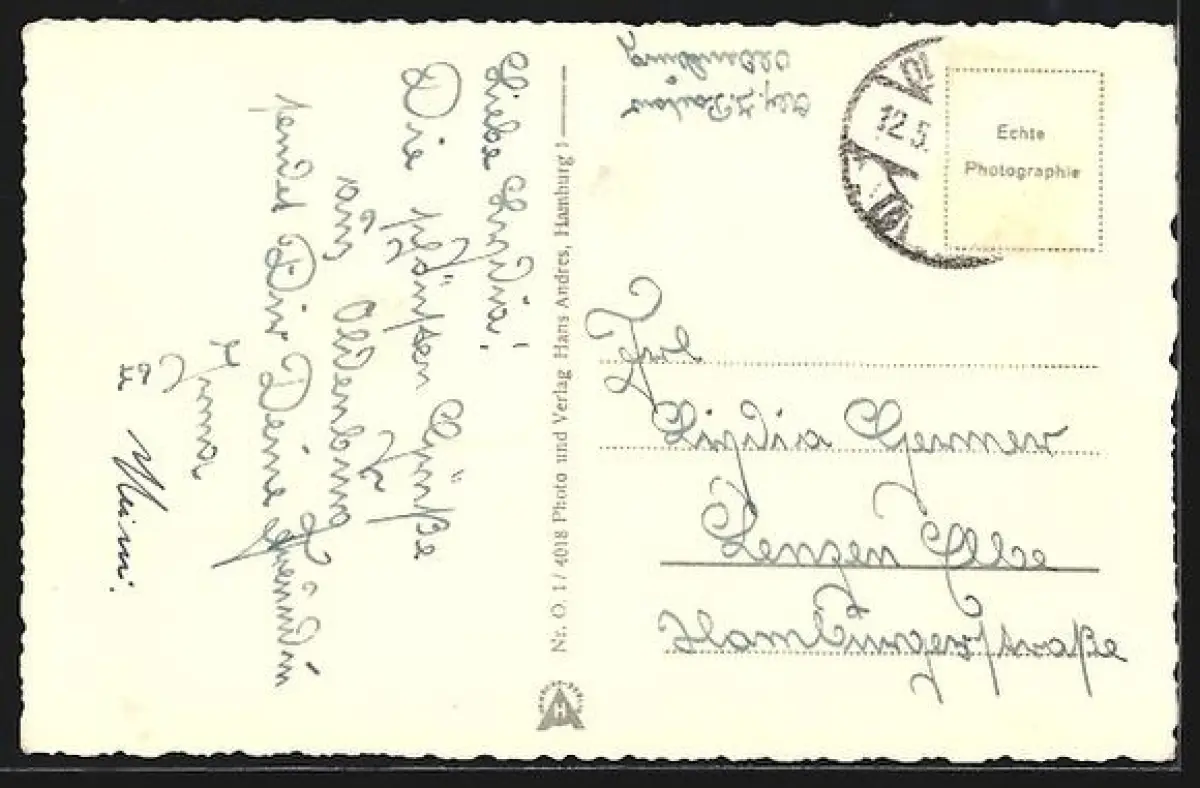 Liebe Lydia!
Die schönsten Grüße
aus Oldenburg
sendet Dir Deine Freundin
Irma
u
Meimi.
Nr. O. 1 / 4018 Photo und Verlag Hans Andres, Hamburg 1
Abs. J.
Oldenburg
12.5.
Echte
Photographie
Frl
Lydia Germer
Lenzen Elbe
Hamburgerstraße
H